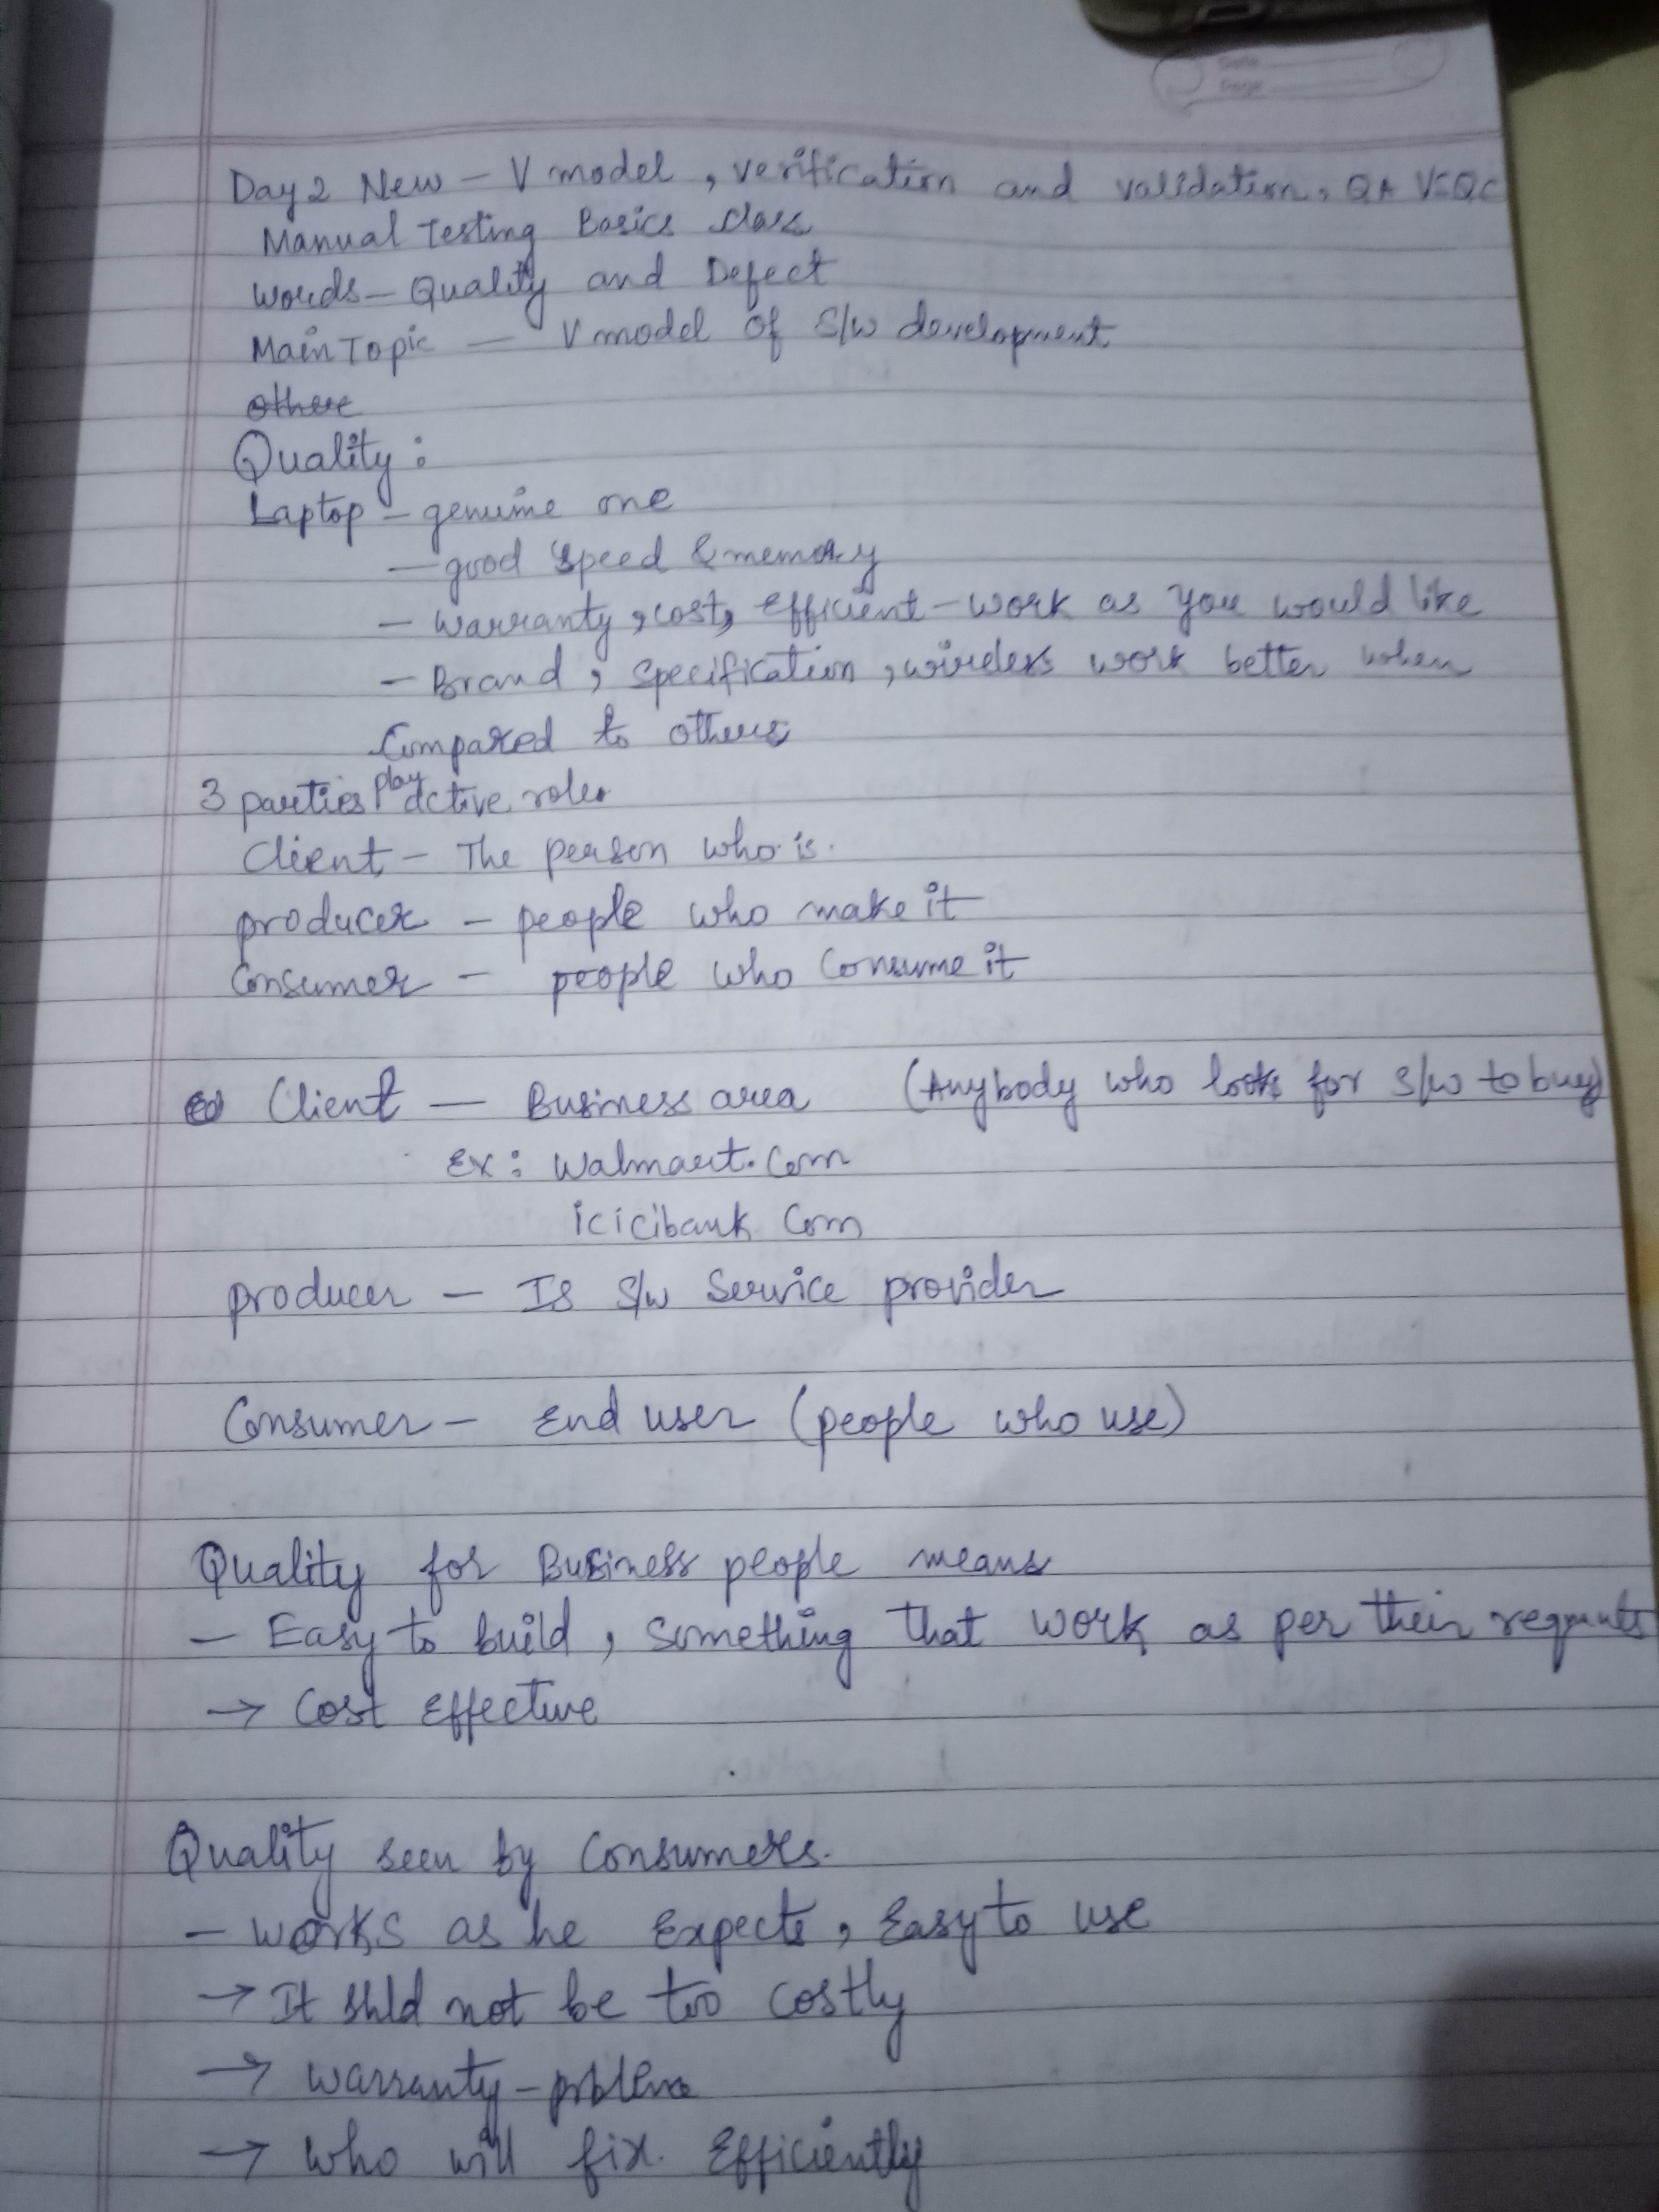 Date
Page
Day 2 New - V model, verification and validation, QA VS QC
Manual Testing Basics class
words - Quality and Defect
Main Topic - V model of S/W development
Quality:
Laptop - genuine one
- good speed & memory
- warranty, cost, efficient - work as you would like
- Brand, specification, wireless work better when
Compared to others
3 parties play active roles
Client - The person who is.
producer - people who make it
Consumer - people who consume it
Client - Business area (Anybody who looks for S/W to buy)
Ex: Walmart.com
icicibank com
producer - Is S/w Service provider
Consumer - End user (people who use)
Quality for Business people means
- Easy to build, something that work as per their
→ Cost Effective
Quality seen by Consumers.
- works as he Expects, Easy to use
→ It shld not be too costly
→ warranty - problem
→ who will fix. Efficiently